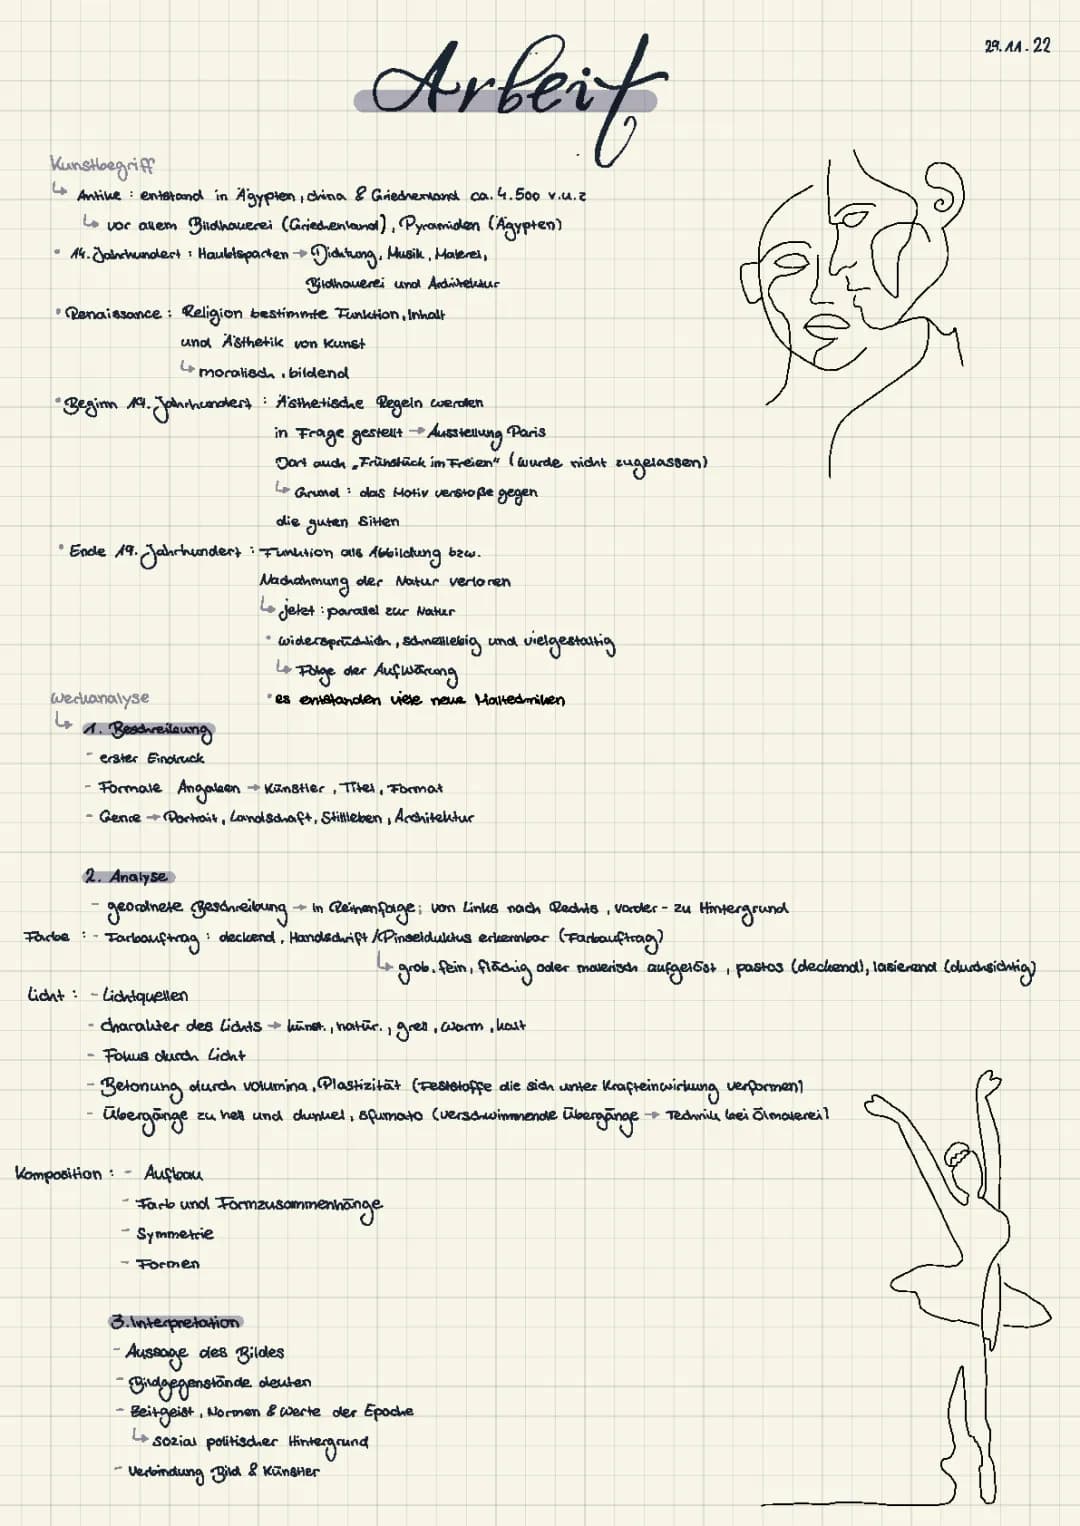 29.11.22
Arbeit
Kunstbegriff
↳ Antike : entstand in Ägypten, china & Griechenland ca. 4.500 v.u.z
↳ vor allem Bildhauerei (Griechenland), Pyramiden (Ägypten)
• 14. Jahrhundert : Haubtsparten → Dichtung, Musik, Malerei,
Bildhauerei und Architektur
• Renaissance : Religion bestimmte Funktion, Inhalt
und Ästhetik von Kunst
↳ moralisch, bildend
• Beginn 19. Jahrhundert : Ästhetische Regeln werden
in Frage gestellt → Ausstellung Paris
Dort auch „Frühstück im Freien" (wurde nicht zugelassen)
↳ Grund : das Motiv verstoße gegen
die guten Sitten
• Ende 19. Jahrhundert : Funktion als Abbildung bzw.
Nachahmung der Natur verloren
↳ jetzt : parallel zur Natur
• widersprüchlich, schnelllebig und vielgestaltig
↳ Folge der Aufklärung
• es entstanden viele neue Maltechniken
Werkanalyse
↳ 1. Beschreibung
- erster Eindruck
- Formale Angaben → Künstler, Titel, Format
- Genre → Portrait, Landschaft, Stillleben, Architektur
2. Analyse
- geordnete Beschreibung → in Reihenfolge; von Links nach Rechts, vorder- zu Hintergrund
Farbe : - Farbauftrag : deckend, Handschrift / Pinselduktus erkennbar (Farbauftrag)
↳ grob, fein, flächig oder malerisch aufgelöst, pastos (deckend), lasierend (durchsichtig)
Licht : - Lichtquellen
- charakter des Lichts → künst., natür., grell, warm, kalt
- Fokus durch Licht
- Betonung durch volumina, Plastizität (Feststoffe die sich unter Krafteinwirkung verformen)
- Übergänge zu hell und dunkel, sfumato (verschwimmende Übergänge → Technik bei Ölmalerei)
Komposition : - Aufbau
- Farb und Formzusammenhänge
- Symmetrie
- Formen
3. Interpretation
- Aussage des Bildes
- Bildgegenstände deuten
- Zeitgeist, Normen & Werte der Epoche
↳ sozial politischer Hintergrund
- Verbindung Bild & Künstler